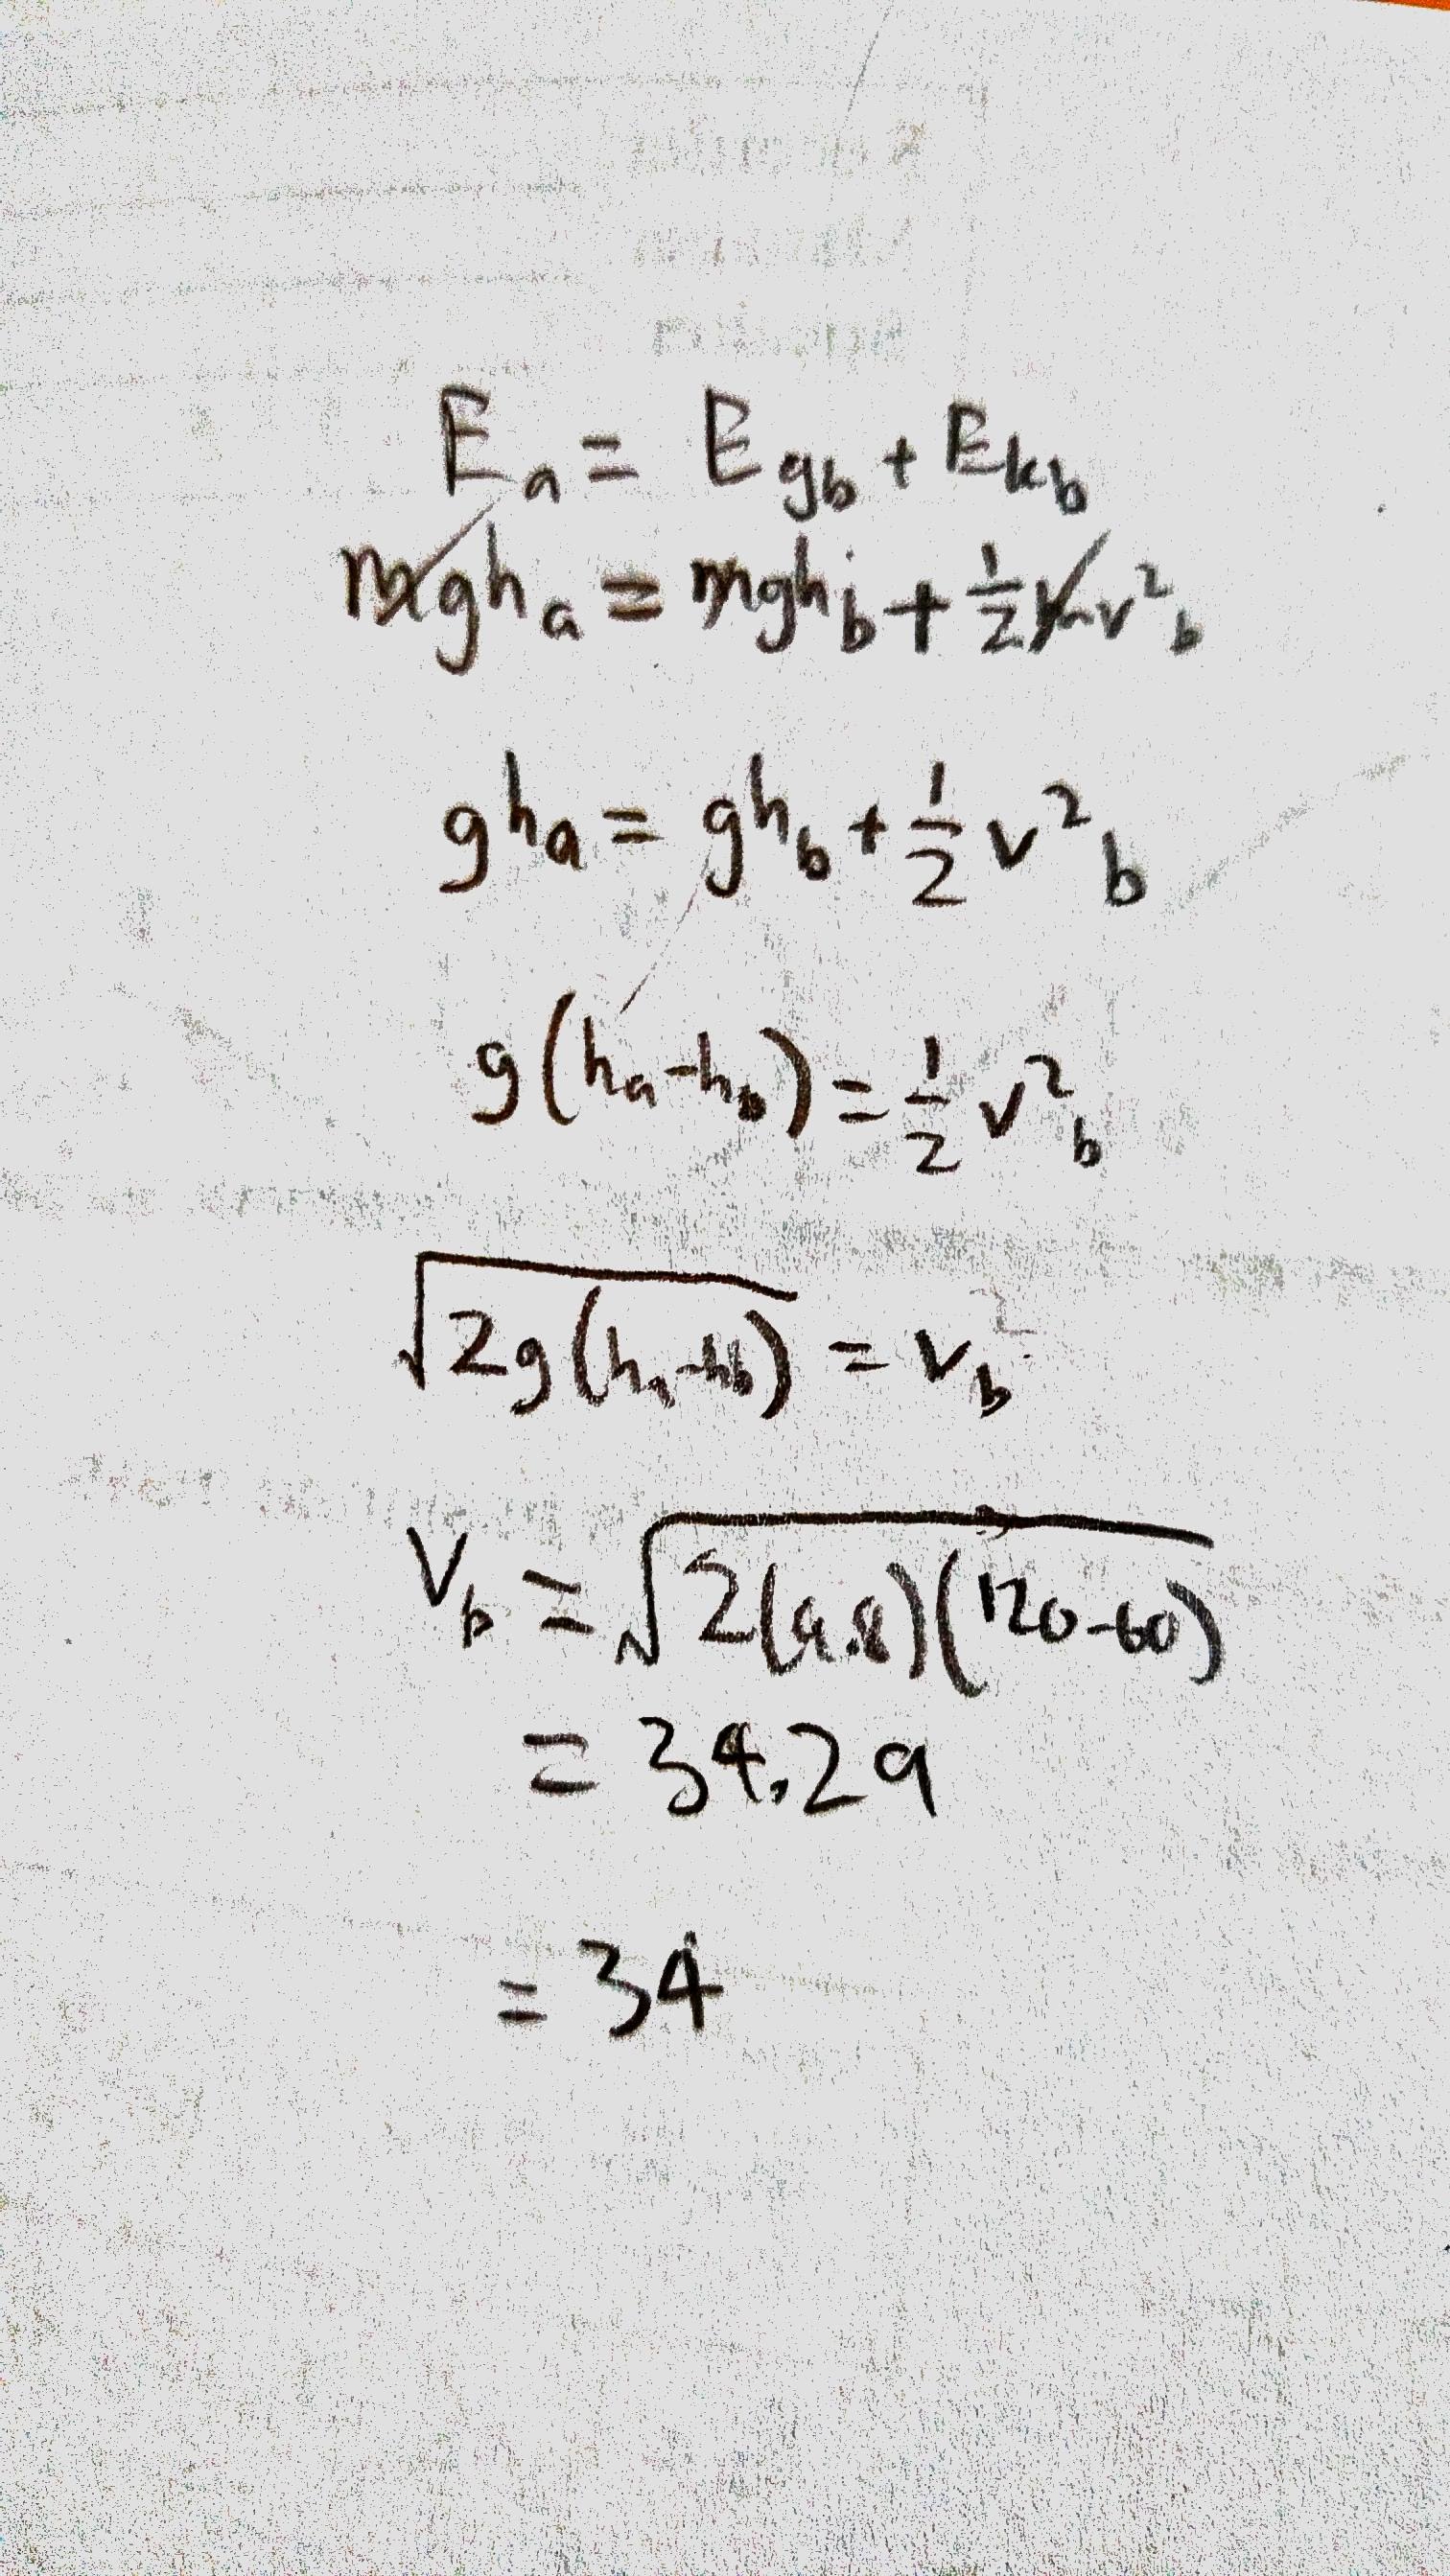 Ea = Egb + Ekb
mgha = mghb + 1/2 mv²b
gha = ghb + 1/2 v²b
g(ha-hb) = 1/2 v²b
√2g(ha-hb) = vb
Vb = √2(9.8)(120-60)
= 34.29
= 34